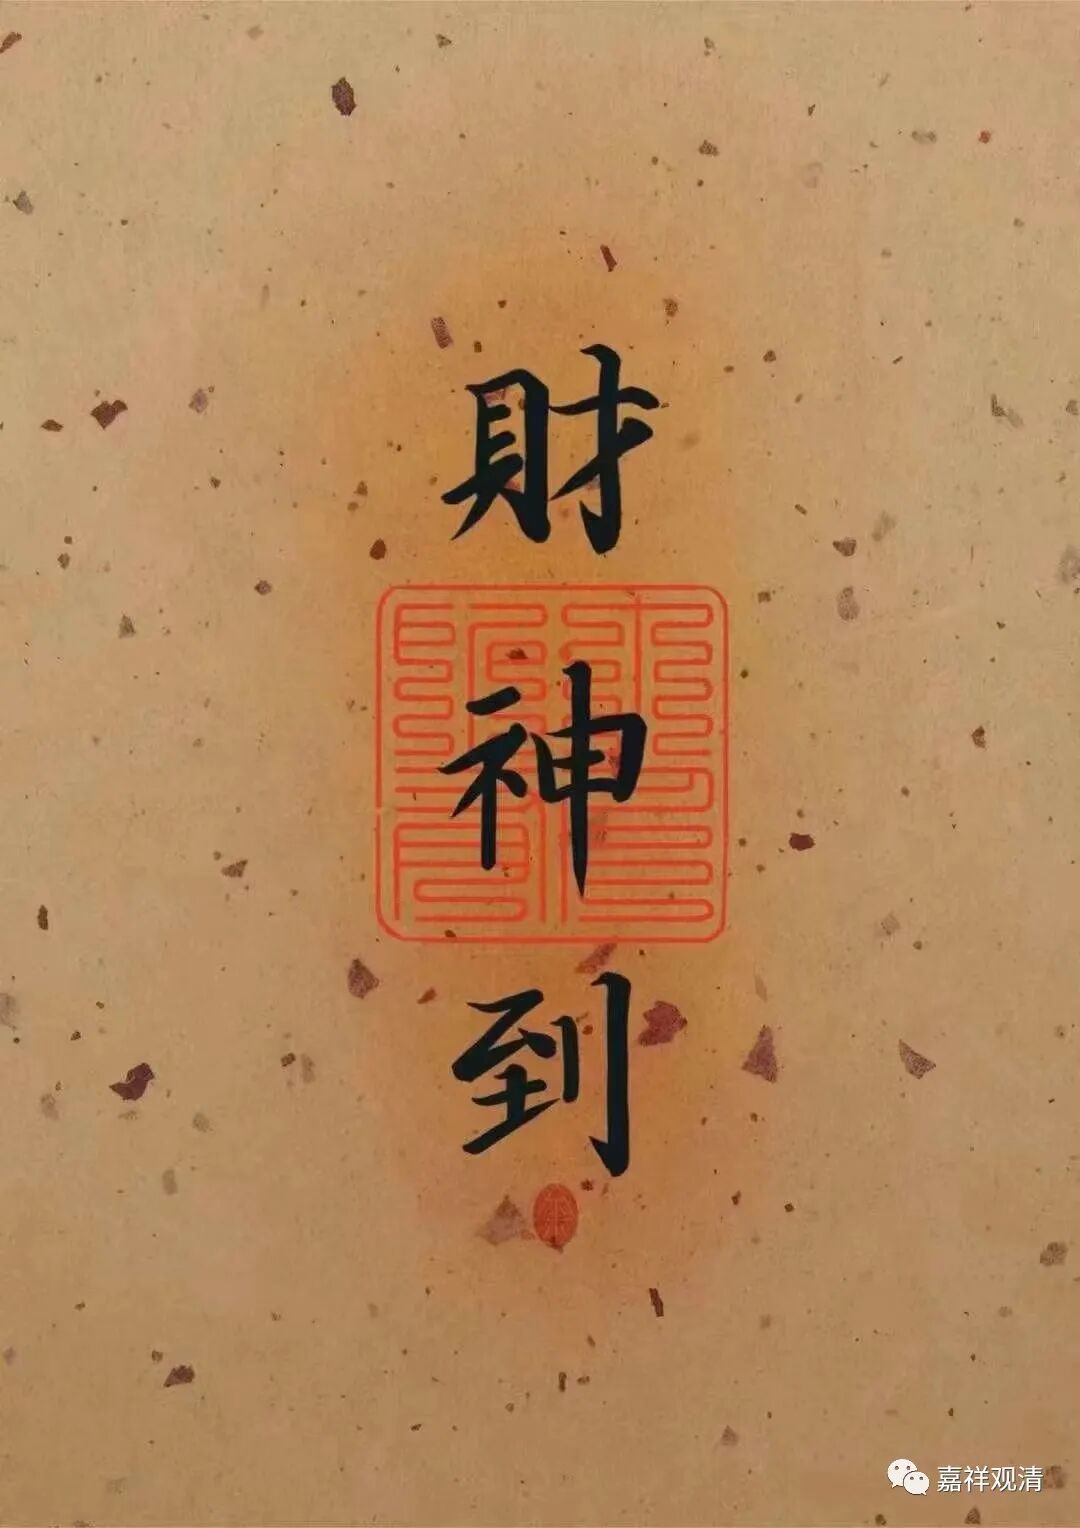 財
神
到
嘉祥观清